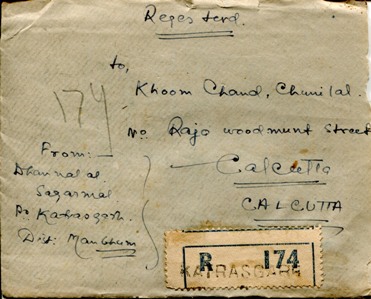 Regesterd.
to,
Khoom Chand, Chunilal.
174
No Raja woodmunt Street
From:-
Calcutta
Dhannalal
Sagarmal
CALCUTTA
Po Katrasgarh.
Dist: Manbhum
R 174
KATRASGARH